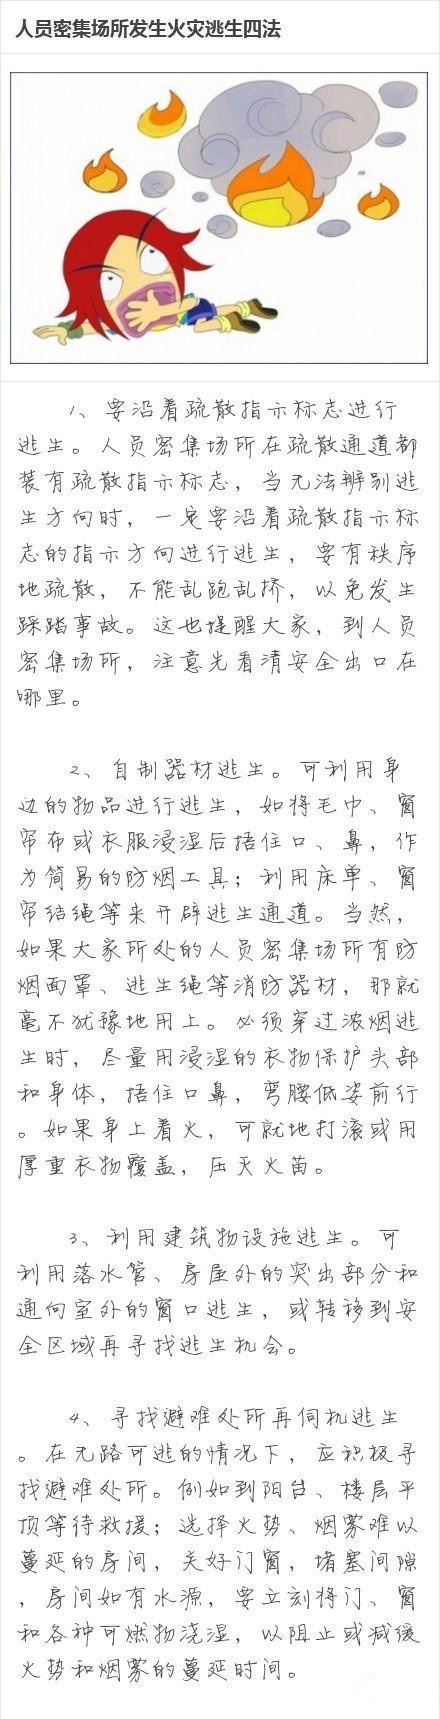 人员密集场所发生火灾逃生四法
1、要沿着疏散指示标志进行
逃生。人员密集场所在疏散通道都
装有疏散指示标志，当无法辨别逃
生方向时，一定要沿着疏散指示标
志的指示方向进行逃生，要有秩序
地疏散，不能乱跑乱挤，以免发生
踩踏事故。这也提醒大家，到人员
密集场所，注意先看清安全出口在
哪里。
2、自制器材逃生。可利用身
边的物品进行逃生，如将毛巾、窗
帘布或衣服浸湿后捂住口、鼻，作
为简易的防烟工具；利用床单、窗
帘结绳等来开辟逃生通道。当然，
如果大家所处的人员密集场所有防
烟面罩、逃生绳等消防器材，那就
毫不犹豫地用上。必须穿过浓烟逃
生时，尽量用浸湿的衣物保护头部
和身体，捂住口鼻，弯腰低姿前行
。如果身上着火，可就地打滚或用
厚重衣物覆盖，压灭火苗。
3、利用建筑物设施逃生。可
利用落水管、房屋外的突出部分和
通向室外的窗口逃生，或转移到安
全区域再寻找逃生机会。
4、寻找避难处所再伺机逃生
。在无路可逃的情况下，应积极寻
找避难处所。例如到阳台、楼层平
顶等待救援；选择火势、烟雾难以
蔓延的房间，关好门窗，堵塞间隙
，房间如有水源，要立刻将门、窗
和各种可燃物浇湿，以阻止或减缓
火势和烟雾的蔓延时间。